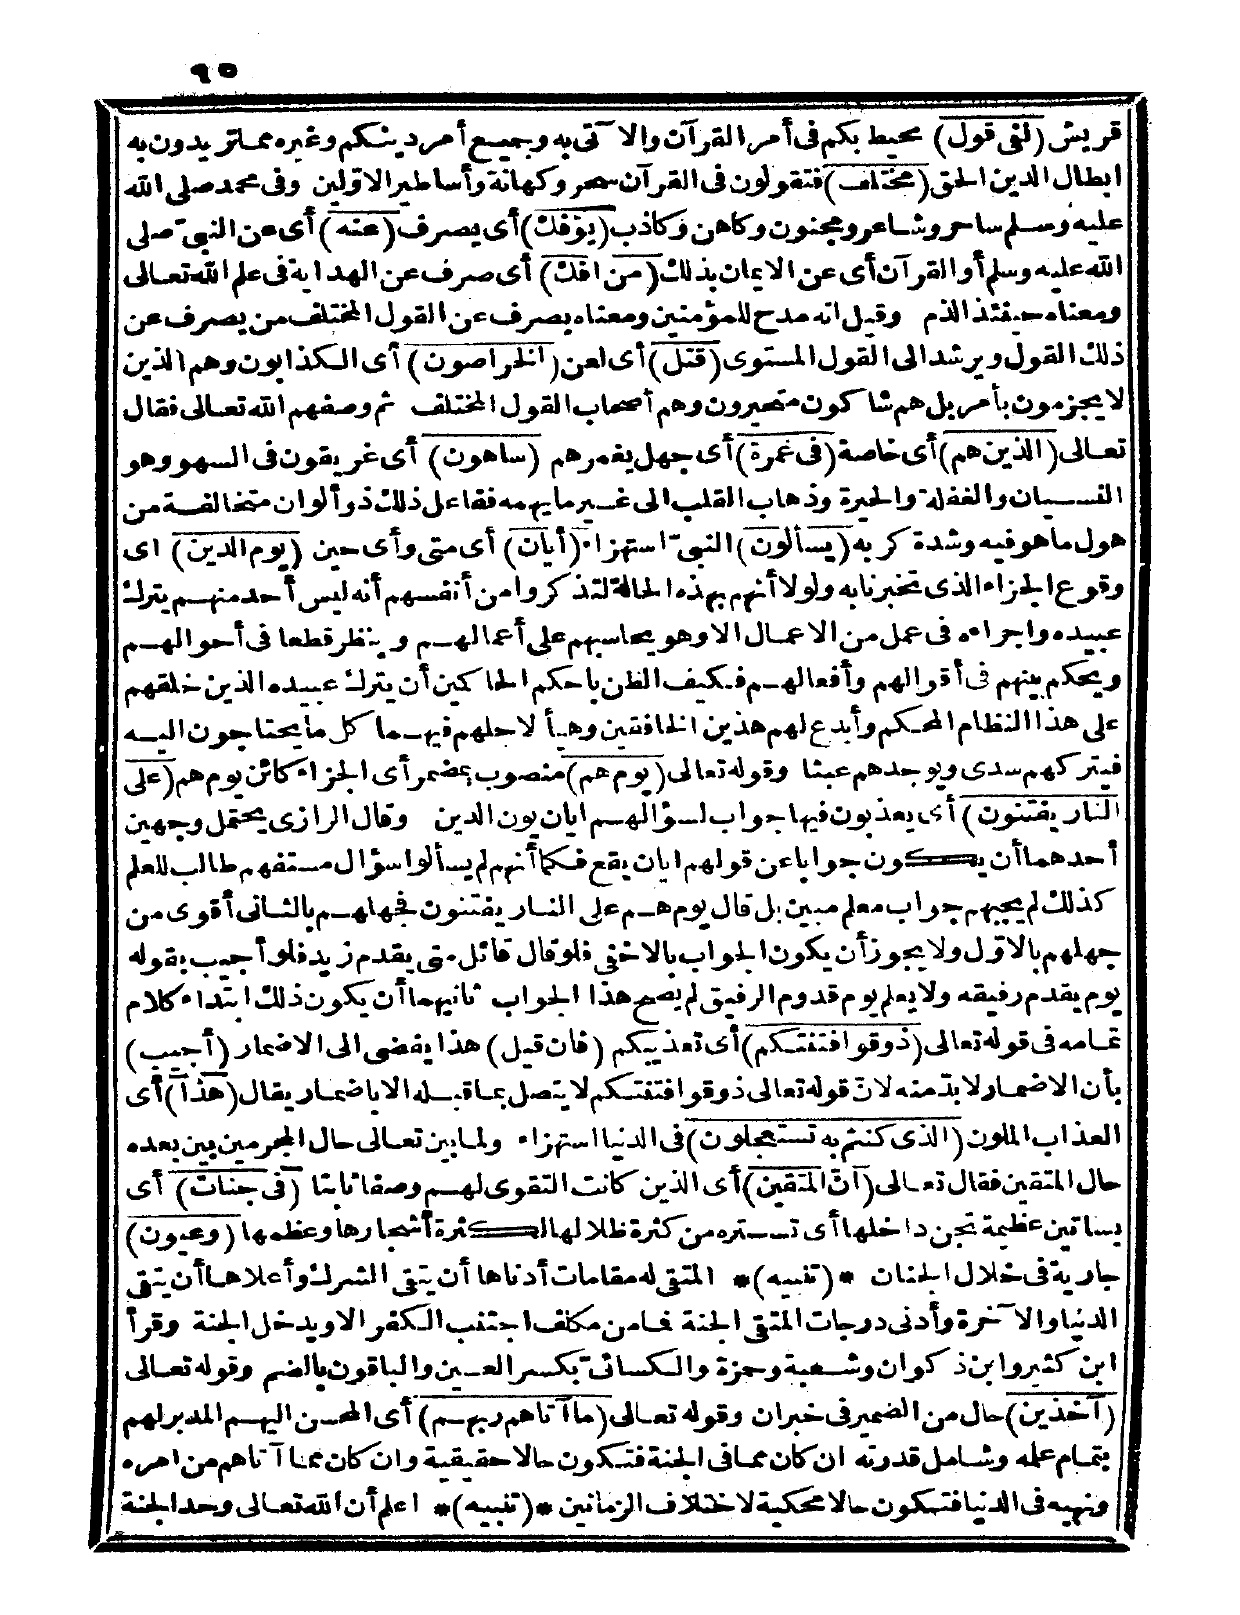 ٩٥
قريش (لفى قول) محيط بكم فى أمر القرآن والا تى به وجميع أمر دينكم وغيره مما تريدون به
ابطال الدين الحق (مختلف) فتقولون فى القرآن سحر وكهانة وأساطير الاولين وفى محمد صلى الله
عليه وسلم ساحر وشاعر ومجنون وكاهن وكاذب (يؤفك) أى يصرف (عنه) أى عن النبىّ صلى
الله عليه وسلم أو القرآن أى عن الايمان بذلك (من افك) أى صرف عن الهداية فى علم الله تعالى
ومعناه حينئذ الذم وقيل انه مدح للمؤمنين ومعناه يصرف عن القول المختلف من يصرف عن
ذلك القول ويرشد الى القول المستوى (قتل) أى لعن (الخراصون) أى الكذابون وهم الذين
لا يجزمون بأمر بل هم شاكون متحيرون وهم أصحاب القول المختلف ثم وصفهم الله تعالى فقال
تعالى (الذين هم) أى خاصة (فى غمرة) أى جهل يغمرهم (ساهون) أى غريقون فى السهو وهو
النسيان والغفلة والحيرة وذهاب القلب الى غير ما يهمه ففاعل ذلك ذو ألوان متخالفة من
هول ما هو فيه وشدة كربه (يسألون) النبىّ استهزاء (أيان) أى متى وأى حين (يوم الدين) اى
وقوع الجزاء الذى تخبرنا به ولولا أنهم بهذه الحالة لتذكروا من أنفسهم أنه ليس أحد منهم يترك
عبيده واجراءه فى عمل من الاعمال الا وهو يحاسبهم على أعمالهم وينظر قطعا فى أحوالهم
ويحكم بينهم فى أقوالهم وأفعالهم فكيف الظن باحكم الحاكمين أن يترك عبيده الذين خلقهم
على هذا النظام المحكم وأبدع لهم هذين الخافقين وهيأ لاجلهم فيهما كل ما يحتاجون اليه
فيتركهم سدى ويوجدهم عبثا وقوله تعالى (يوم هم) منصوب بمضمر أى الجزاء كائن يوم هم (على
النار يفتنون) أى يعذبون فيها جواب لسؤالهم ايان يون الدين وقال الرازى يحتمل وجهين
أحدهما أن يكون جوابا عن قولهم ايان يقع فكما أنهم لم يسألوا سؤال مستفهم طالب للعلم
كذلك لم يجبهم جواب معلم مبين بل قال يوم هم على النار يفتنون فجهلهم بالثانى أقوى من
جهلهم بالاوّل ولا يجوز أن يكون الجواب بالاخفى فلو قال قائل متى يقدم زيد فلو أجيب بقوله
يوم يقدم رفيقه ولا يعلم يوم قدوم الرفيق لم يصح هذا الجواب ثانيهما أن يكون ذلك ابتداء كلام
تمامه فى قوله تعالى (ذوقوا فتنتكم) أى تعذيبكم (فان قيل) هذا يفضى الى الاضمار (أجيب)
بأن الاضمار لا بدّ منه لانّ قوله تعالى ذوقوا فتنتكم لا يتصل بما قبله الا باضمار يقال (هذا) أى
العذاب الملون (الذى كنتم به تستعجلون) فى الدنيا استهزاء ولما بين تعالى حال المجرمين بين بعده
حال المتقين فقال تعالى (انّ المتقين) أى الذين كانت التقوى لهم وصفا ثابتا (فى جنات) أى
بساتين عظيمة تجن داخلها أى تستره من كثرة ظلالها لكثرة أشجارها وعظمها (وعيون)
جارية فى خلال الجنان *(تنبيه)* المتقى له مقامات أدناها أن يتقى الشرك وأعلاها أن يتقى
الدنيا والا خرة وأدنى درجات المتقى الجنة فما من مكلف اجتنب الكفر الا ويدخل الجنة وقرأ
ابن كثير وابن ذكوان وشعبة وحمزة والكسائىّ بكسر العين والباقون بالضم وقوله تعالى
(آخذين) حال من الضمير فى خبر ان وقوله تعالى (ما آتاهم ربهم) أى المحسن اليهم المدبر لهم
بتمام علمه وشامل قدرته ان كان مما فى الجنة فتكون حالا حقيقية وان كان مما آتاهم من امره
ونهيه فى الدنيا فتكون حالا محكية لاختلاف الزمانين *(تنبيه)* اعلم أن الله تعالى وحد الجنة